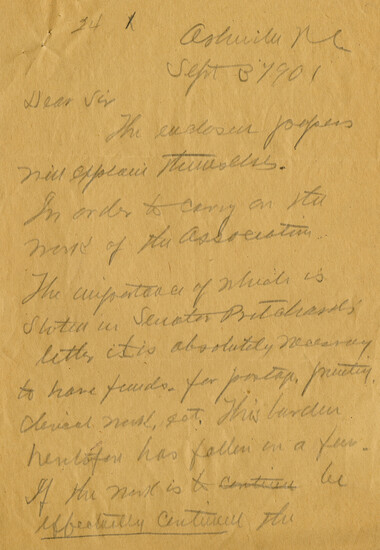 24
Asheville N C
Sept 3 1901
Dear Sir
The enclosed papers
will explain themselves.
In order to carry on the
work of the Association.
The importance of which is
Stated in Senator Pritchards
letter it is absolutely necessary
to have funds. for postage, printing,
clerical work, ect. This burden
heretofore has fallen on a few.
If the work is to continue be
effectually continued the